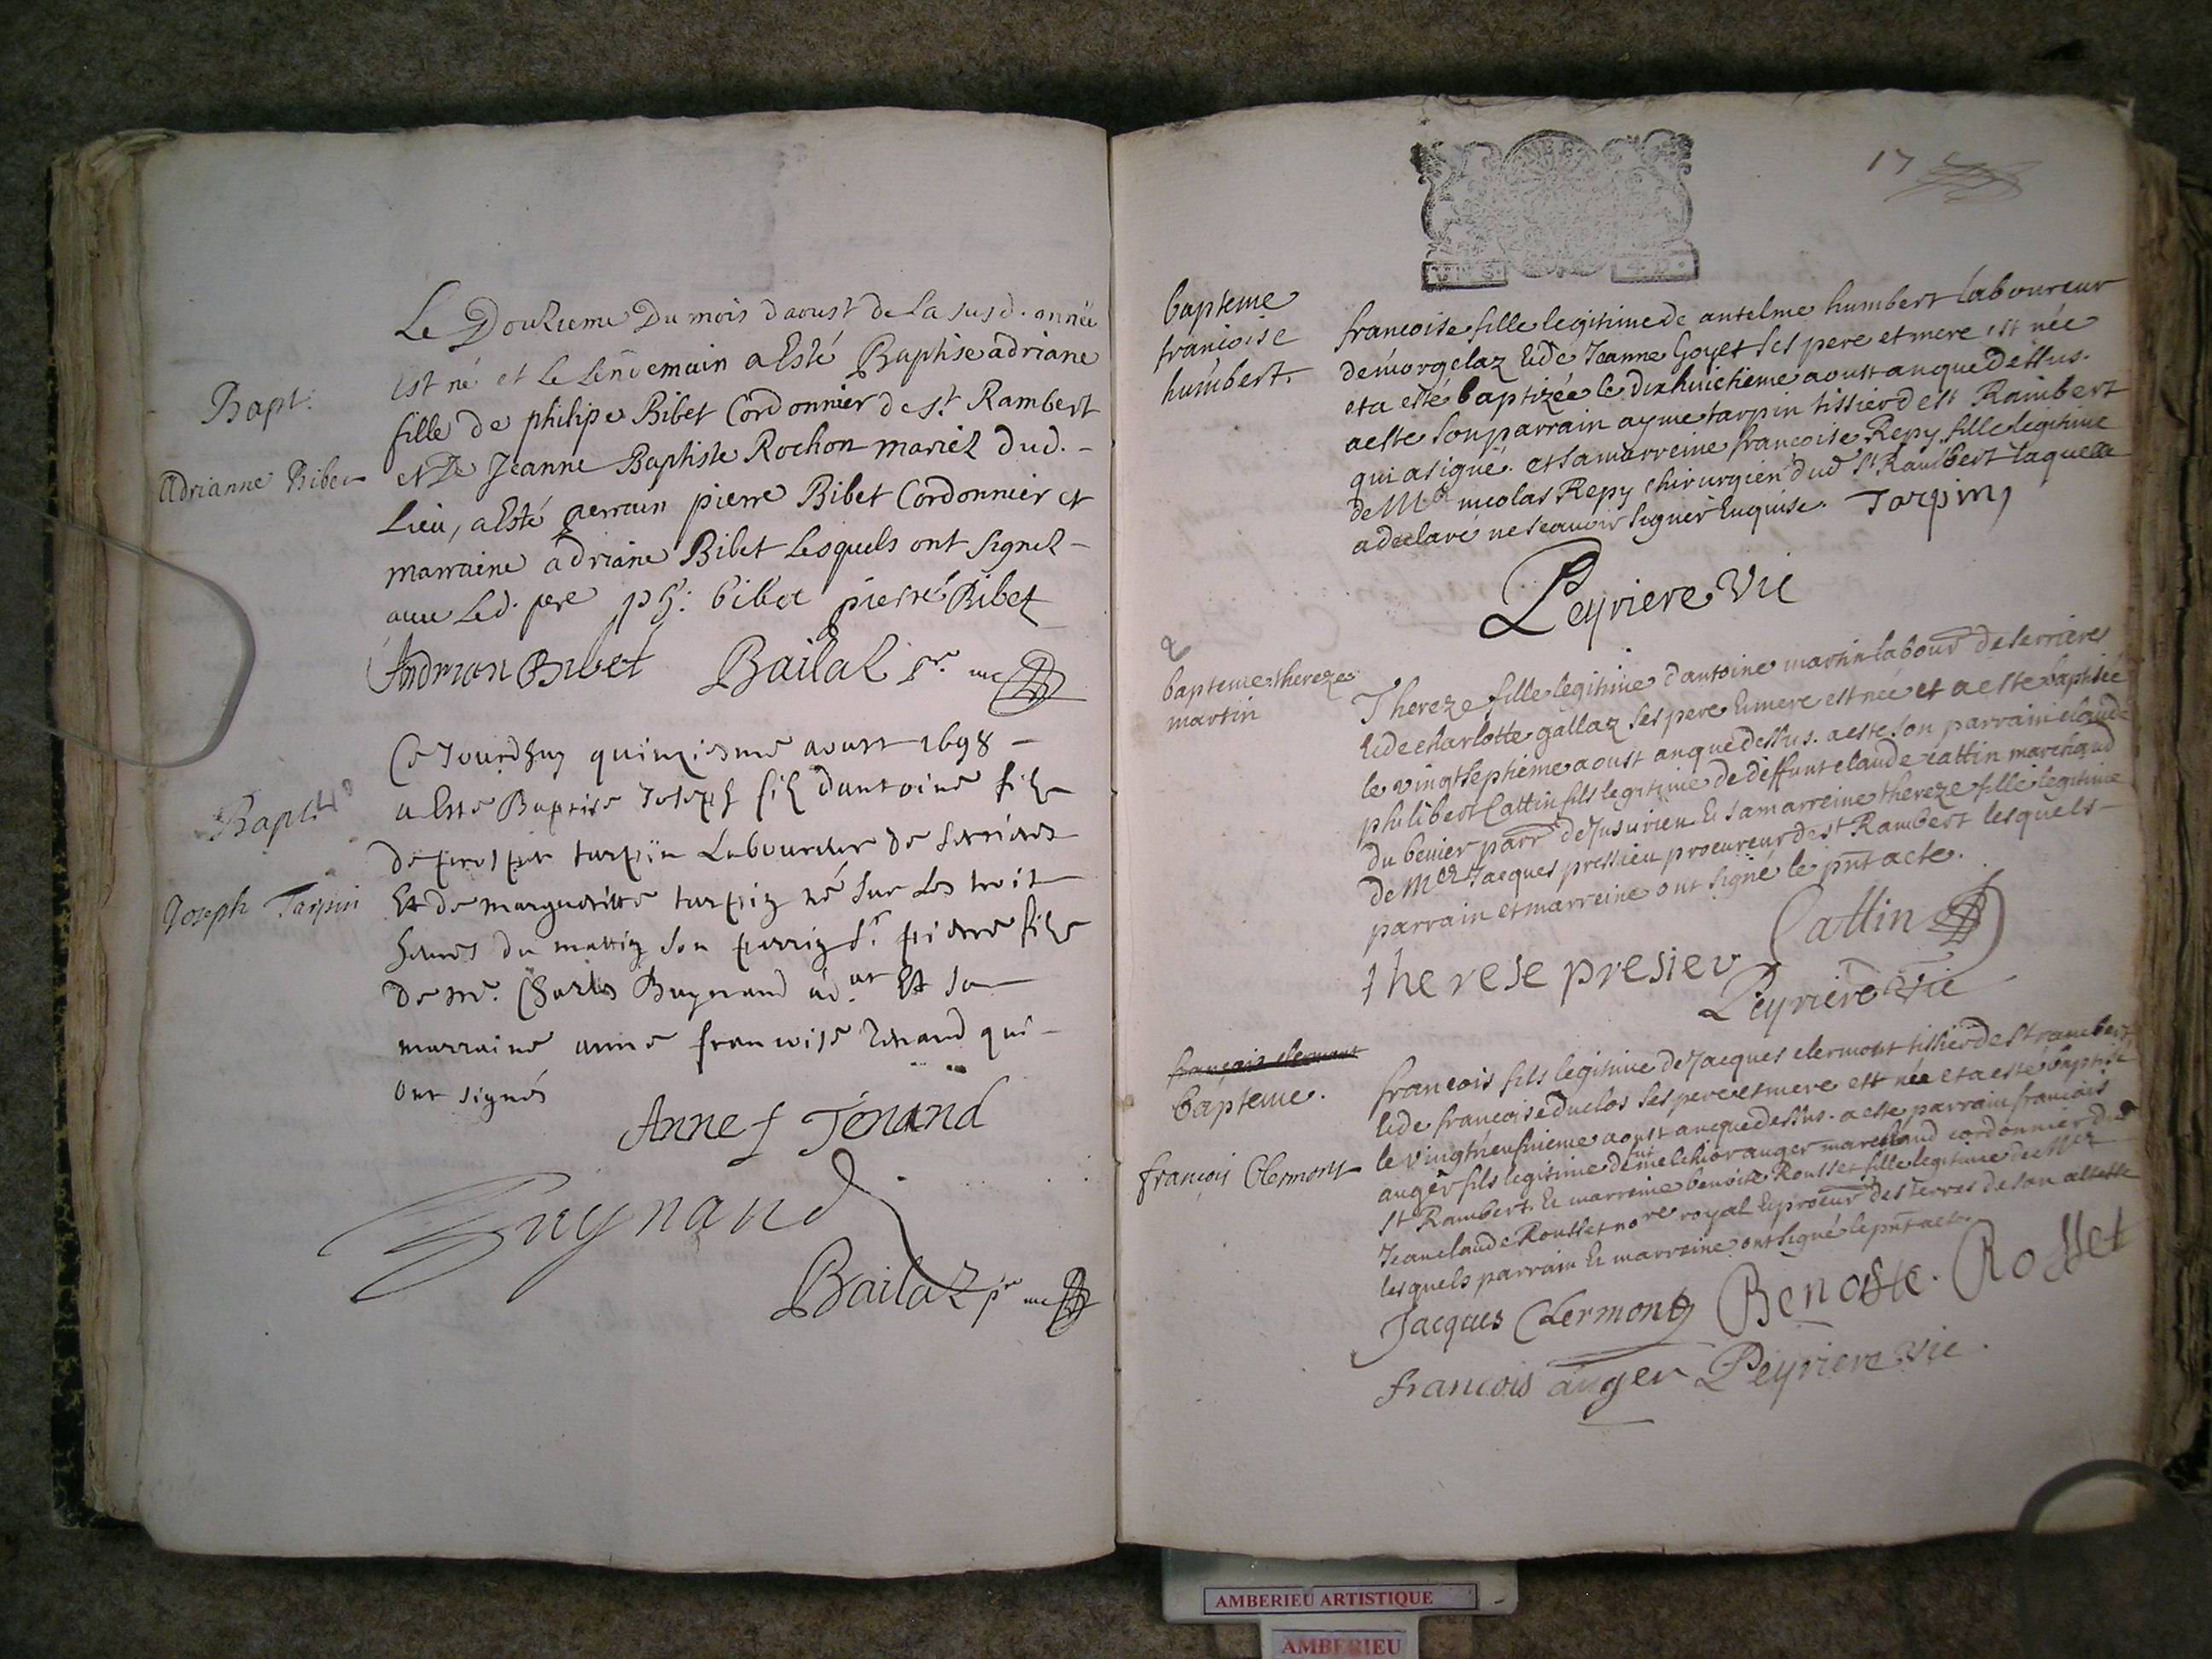 Le Douzieme Du mois daoust de La susd. année
Bapt.
Adrianne Bibet
est né et le lendemain a Esté Baptise adriane
fille de philipe Bibet Cordonnier de st Rambert
et De Jeanne Baptiste Rochon mariez dud. -
Lieu, a Esté perrain pierre Bibet Cordonnier et
marraine adriane Bibet Lesquels ont signez -
avec Led. pere ph: bibet pierre Bibet
Andrian Bibet Bailaz
Bapt
Joseph Tarpin
Ce Jourdhuy quinziesme aoust 1698 -
a Este Baptise Joseph filz dantoine filz
de prosper tarpin Laboureur de serrieres
Et de margueritte tarpin né sur les troit
heures du mattin son parrin sr. pierre filz
de mr. Charles Buynand ad.at Et sa
marraine anne francoise Tenand qui -
ont signés
Anne f Tenand
Buynand
Bailaz
17
bapteme
francoise
humbert.
francoise fille legitime de antelme humbert laboureur
demorgelaz & de Jeanne Goyet ses pere et mere est née
et a esté baptizée le dix huictieme aoust an que dessus.
a este son parrain ayme tarpin tissier de st Rambert
qui a signé. et sa marreine francoise Repy fille legitime
de Mr nicolas Repy chirurgien dud st Rambert laquelle
a declaré ne scavoir signer Enquise. Tarpin
Peyriere Vic
bapteme thereze
martin
Thereze fille legitime d'antoine martin labour de serrieres
& de charlotte gallaz ses pere & mere est née et a este baptisée
le vingtseptieme aoust an que dessus. a este son parrain claude
philibert Cattin fils legitime de deffunt claude cattin marchand
du benier parr de Jusurieu & sa marreine thereze fille legitime
de Mer Jacques pressieu procureur de st Rambert lesquels -
parrain et marreine ont signé le pnt acte.
Cattin
therese presieu
Peyriere Vic
françois clermont
bapteme.
françois Clermont
francois fils legitime de Jacques clermont tissier de st rambert
& de francoise duclos ses pere et mere est née et a esté baptisé
le vingtneufuieme aoust an que dessus. a este parrain francois
auger fils legitime de melchior auger marchand cordonnier dud
st Rambert. & marreine benoite Rousset fille legitime de Mer
Jean claude Rousset nore royal & procur des terres de son altesse
lesquels parrain & marreine ont signé le pnt acte.
Jacques Clermont Benoiste. Rosset
francois auger Peyriere Vic.
AMBERIEU ARTISTIQUE
AMBERIEU